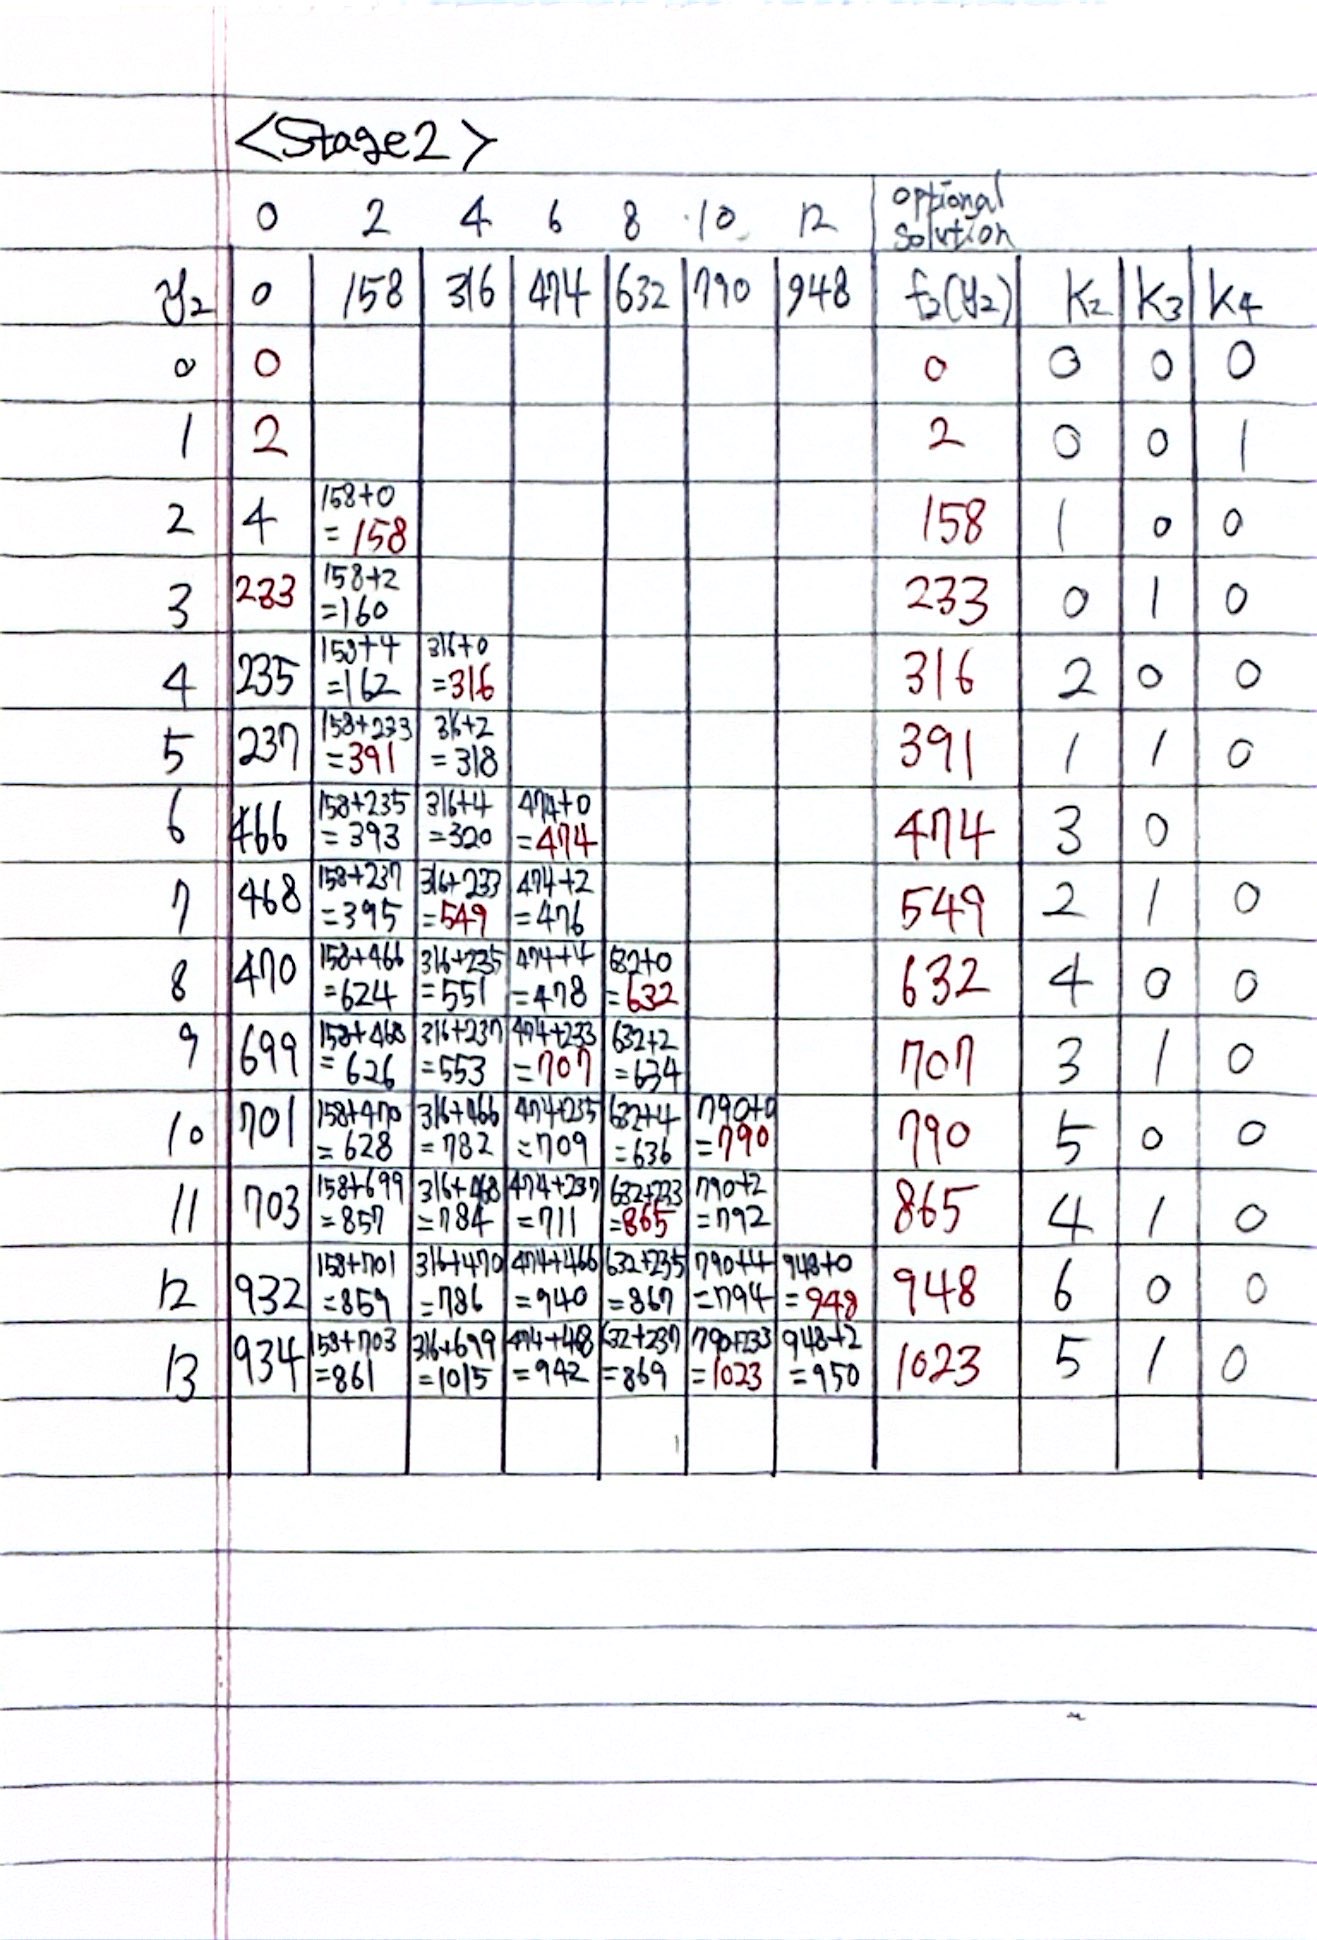 <Stage2>
0 2 4 6 8 10 12 optional solution
y2 0 158 316 474 632 790 948 f2(y2) K2 K3 K4
0 0 0 0 0 0
1 2 2 0 0 1
2 4 158+0 =158 158 1 0 0
3 233 158+2 =160 233 0 1 0
4 235 158+4 =162 316+0 =316 316 2 0 0
5 237 158+233 =391 316+2 =318 391 1 1 0
6 466 158+235 =393 316+4 =320 474+0 =474 474 3 0
7 468 158+237 =395 316+233 =549 474+2 =476 549 2 1 0
8 470 158+466 =624 316+235 =551 474+4 =478 632+0 =632 632 4 0 0
9 699 158+468 =626 316+237 =553 474+233 =707 632+2 =634 707 3 1 0
10 701 158+470 =628 316+466 =782 474+235 =709 632+4 =636 790+0 =790 790 5 0 0
11 703 158+699 =857 316+468 =784 474+237 =711 632+233 =865 790+2 =792 865 4 1 0
12 932 158+701 =859 316+470 =786 474+466 =940 632+235 =867 790+4 =794 948+0 =948 948 6 0 0
13 934 158+703 =861 316+699 =1015 474+468 =942 632+237 =869 790+233 =1023 948+2 =950 1023 5 1 0